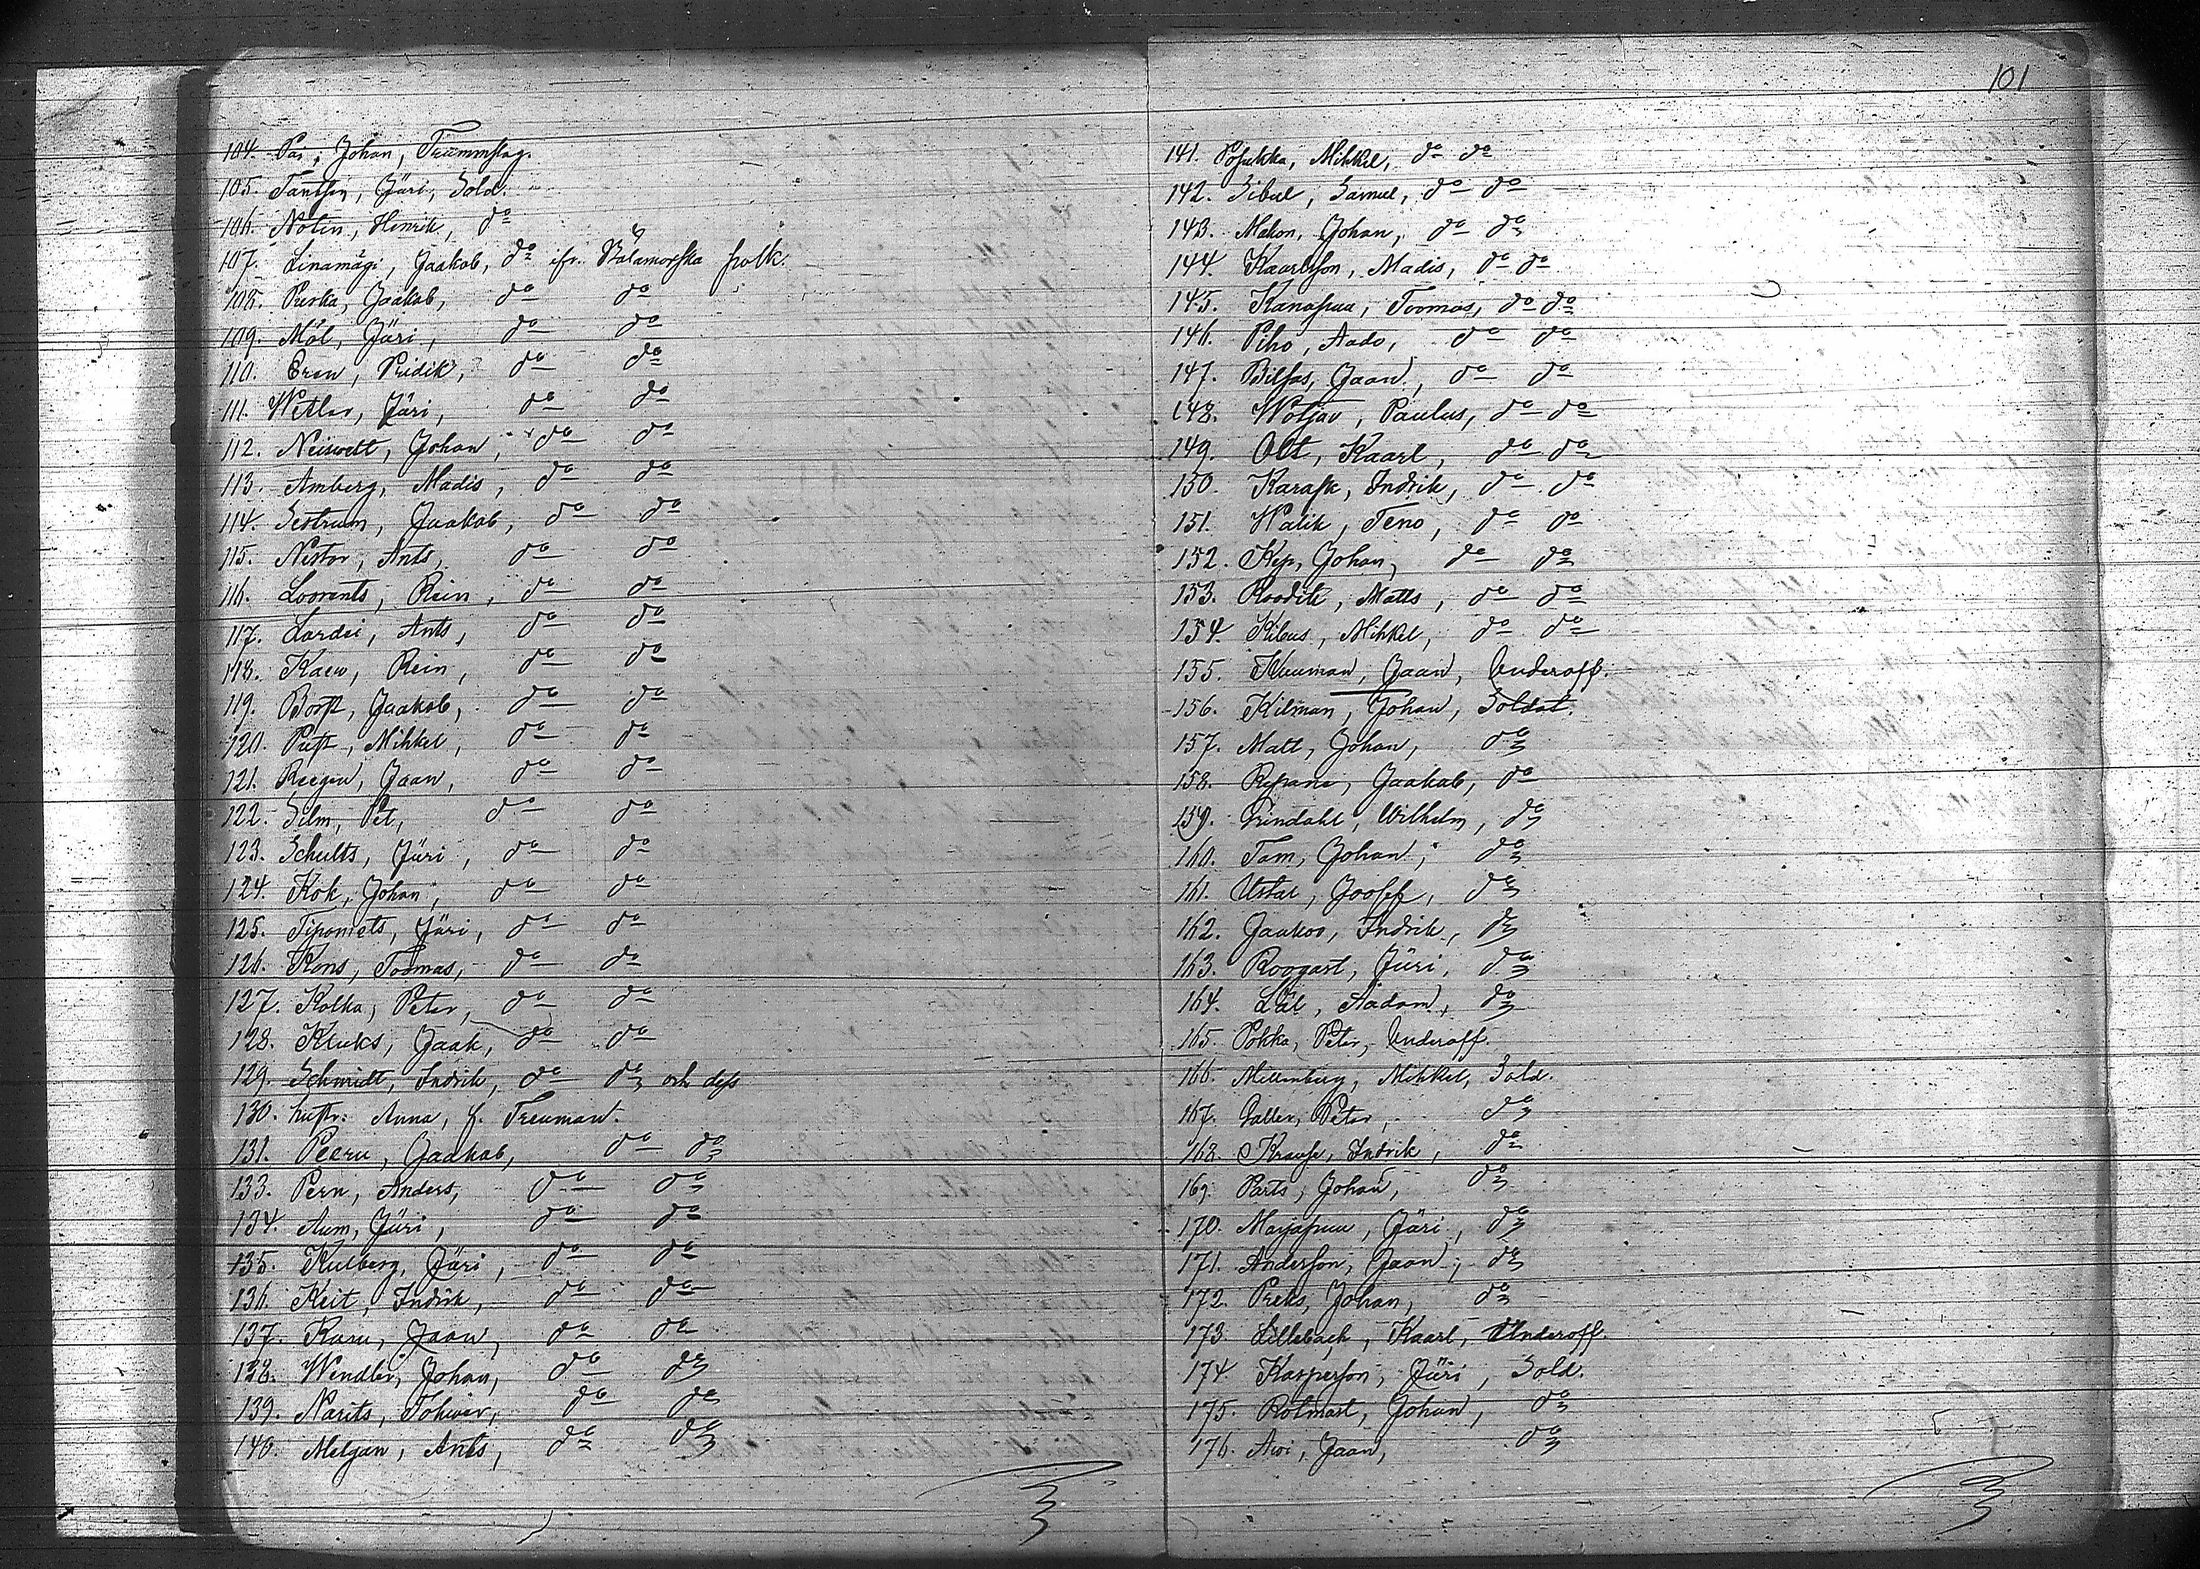 101
104. Pai, Johan, Trummslag.
105. Jüri, Sold.
106. Notin, Henrik, do
107. Linamägi, Jaakob, do ifr. Balamorska polk.
108. Jaakob, do do
109. Möl, Jüri, do do
110. Eren, Pridik, do do
111. Wetler, Jüri, do do
112. Neiswelt, Johan, do do
113. Amberg, Madis, do do
114. Sestrum, Jaakob, do do
115. Nestor, Ants, do do
116. Loorents, Rein, do do
117. Lardei, Ants, do do
118. Kaew, Rein, do do
119. Borst, Jaakob, do do
120. Pust, Mihkel, do do
121. Reegin, Jaan, do do
122. Silm, Pet, do do
123. Schults, Jüri, do do
124. Kok, Johan, do do
125. Tiponiets, Jüri, do do
126. Kons, Toomas, do do
127. Kolka, Peter, do do
128. Kluks, Jaak, do do
129. Schmidt, Indrik, do do och dess
130. hustr: Anna, f. Treumann.
131. Peeru, Jaakob, do do
133. Pern, Anders, do do
134. Aum, Jüri, do do
135. Kulberg, Jüri, do do
136. Keit, Indrik, do do
137. Kuru, Jaan, do do
138. Wendler, Johan, do do
139. Narits, Tohwer, do do
140. Melgan, Ants, do do
141. Mihkel, do do
142. Sibul, Samuel, do do
143. Makon, Johan, do do
144. Kaarlsson, Madis, do do
145. Kanapuu, Toomas, do do
146. Piho, Aado, do do
147. Bilsas, Jaan, do do
148. Wotjav, Paulus, do do
149. Olt, Kaarl, do do
150. Karask, Indrik, do do
151. Walik, Teno, do do
152. Kep, Johan, do do
153. Roodik, Matts, do do
154. Kibus, Mihkel, do do
155. Jaan, Underoff.
156. Kilman, Johan, Soldat.
157. Matt, Johan, do
158. Repane, Jaakob, do
159. Grindahl, Wilhelm, do
160. Tam, Johan, do
161. Ustal, Joosep, do
162. Jaakoo, Indrik, do
163. Roogast, Jüri, do
164. Lül, Aadam, do
165. Pokka, Peter, Underoff.
166. Millenberg, Mihkel, Sold.
167. Galler, Peter, do
168. Krause, Indrik, do
169. Parts, Johan, do
170. Marjapuu, Jüri, do
171. Andersson, Jaan, do
172. Preks, Johan, do
173. Lillebach, Kaarl, Underoff.
174. Kasperson, Jüri, Sold.
175. Rotmast, Johan, do
176. Awi, Jaan, do